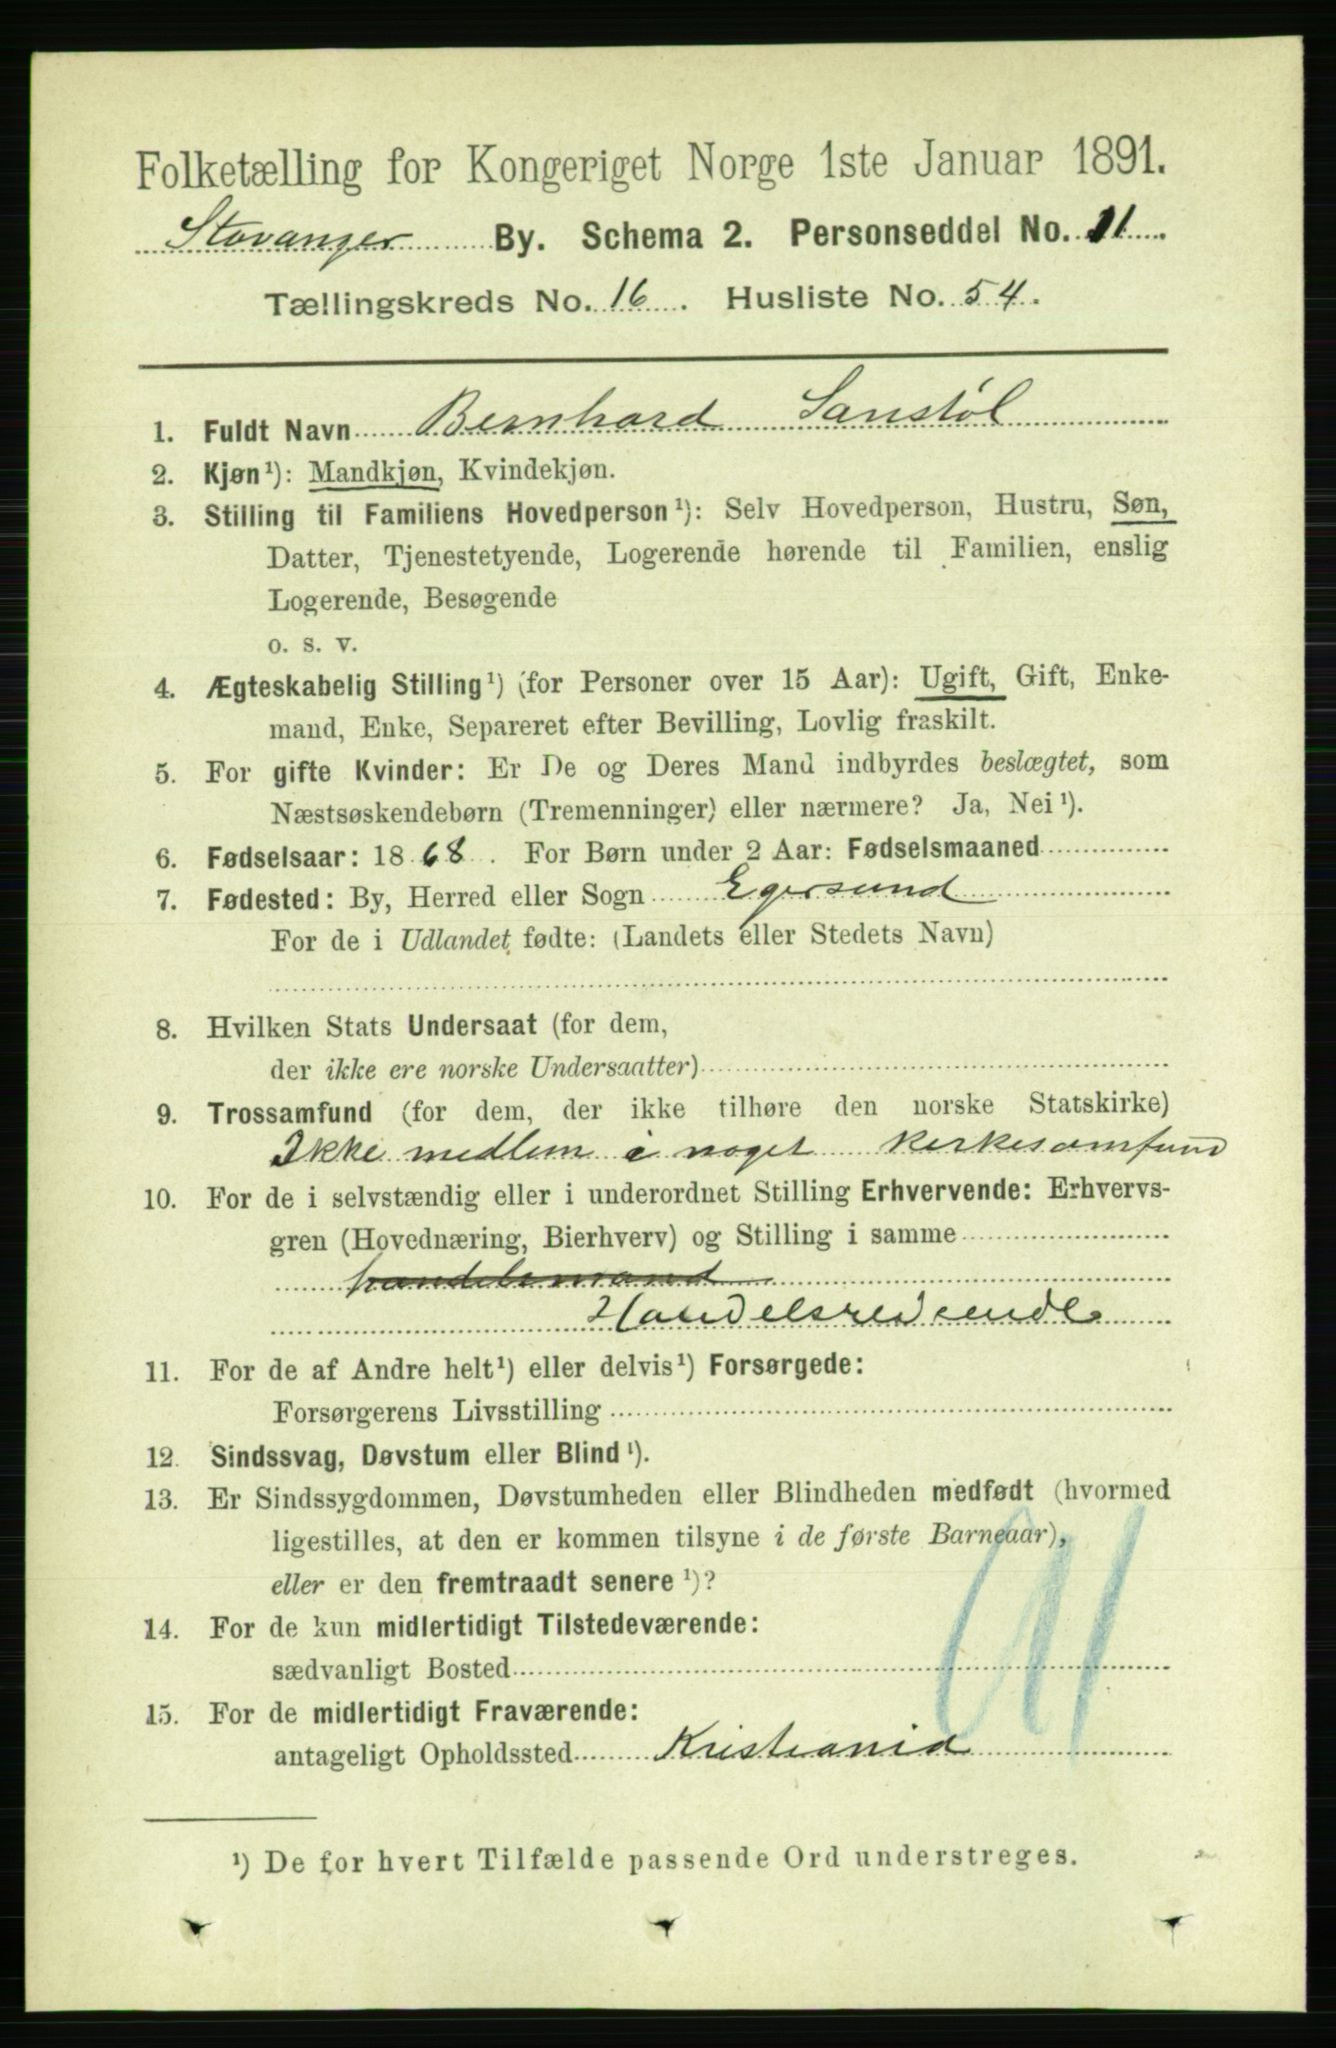 Folketælling for Kongeriget Norge 1ste Januar 1891.
Stavanger By. Schema 2. Personseddel No. 11.
Tællingskreds No. 16. Husliste No. 54.
1. Fuldt Navn Bernhard Sanstøl
2. Kjøn¹): Mandkjøn, Kvindekjøn.
3. Stilling til Familiens Hovedperson¹): Selv Hovedperson, Hustru, Søn,
Datter, Tjenestetyende, Logerende hørende til Familien, enslig
Logerende, Besøgende
o. s. v.
4. Ægteskabelig Stilling¹) (for Personer over 15 Aar): Ugift, Gift, Enke-
mand, Enke, Separeret efter Bevilling, Lovlig fraskilt.
5. For gifte Kvinder: Er De og Deres Mand indbyrdes beslægtet, som
Næstsøskendebørn (Tremenninger) eller nærmere? Ja, Nei¹).
6. Fødselsaar: 1868. For Børn under 2 Aar: Fødselsmaaned
7. Fødested: By, Herred eller Sogn Egersund
For de i Udlandet fødte: (Landets eller Stedets Navn)
8. Hvilken Stats Undersaat (for dem,
der ikke ere norske Undersaatter)
9. Trossamfund (for dem, der ikke tilhøre den norske Statskirke)
Ikke medlem i noget kirkesamfund
10. For de i selvstændig eller i underordnet Stilling Erhvervende: Erhvervs-
gren (Hovednæring, Bierhverv) og Stilling i samme
handelsmand
Handelsreisende
11. For de af Andre helt¹) eller delvis¹) Forsørgede:
Forsørgerens Livsstilling
12. Sindssvag, Døvstum eller Blind¹).
13. Er Sindssygdommen, Døvstumheden eller Blindheden medfødt (hvormed
ligestilles, at den er kommen tilsyne i de første Barneaar),
eller er den fremtraadt senere¹)?
14. For de kun midlertidigt Tilstedeværende:
sædvanligt Bosted
15. For de midlertidigt Fraværende:
antageligt Opholdssted Kristiania
¹) De for hvert Tilfælde passende Ord understreges.